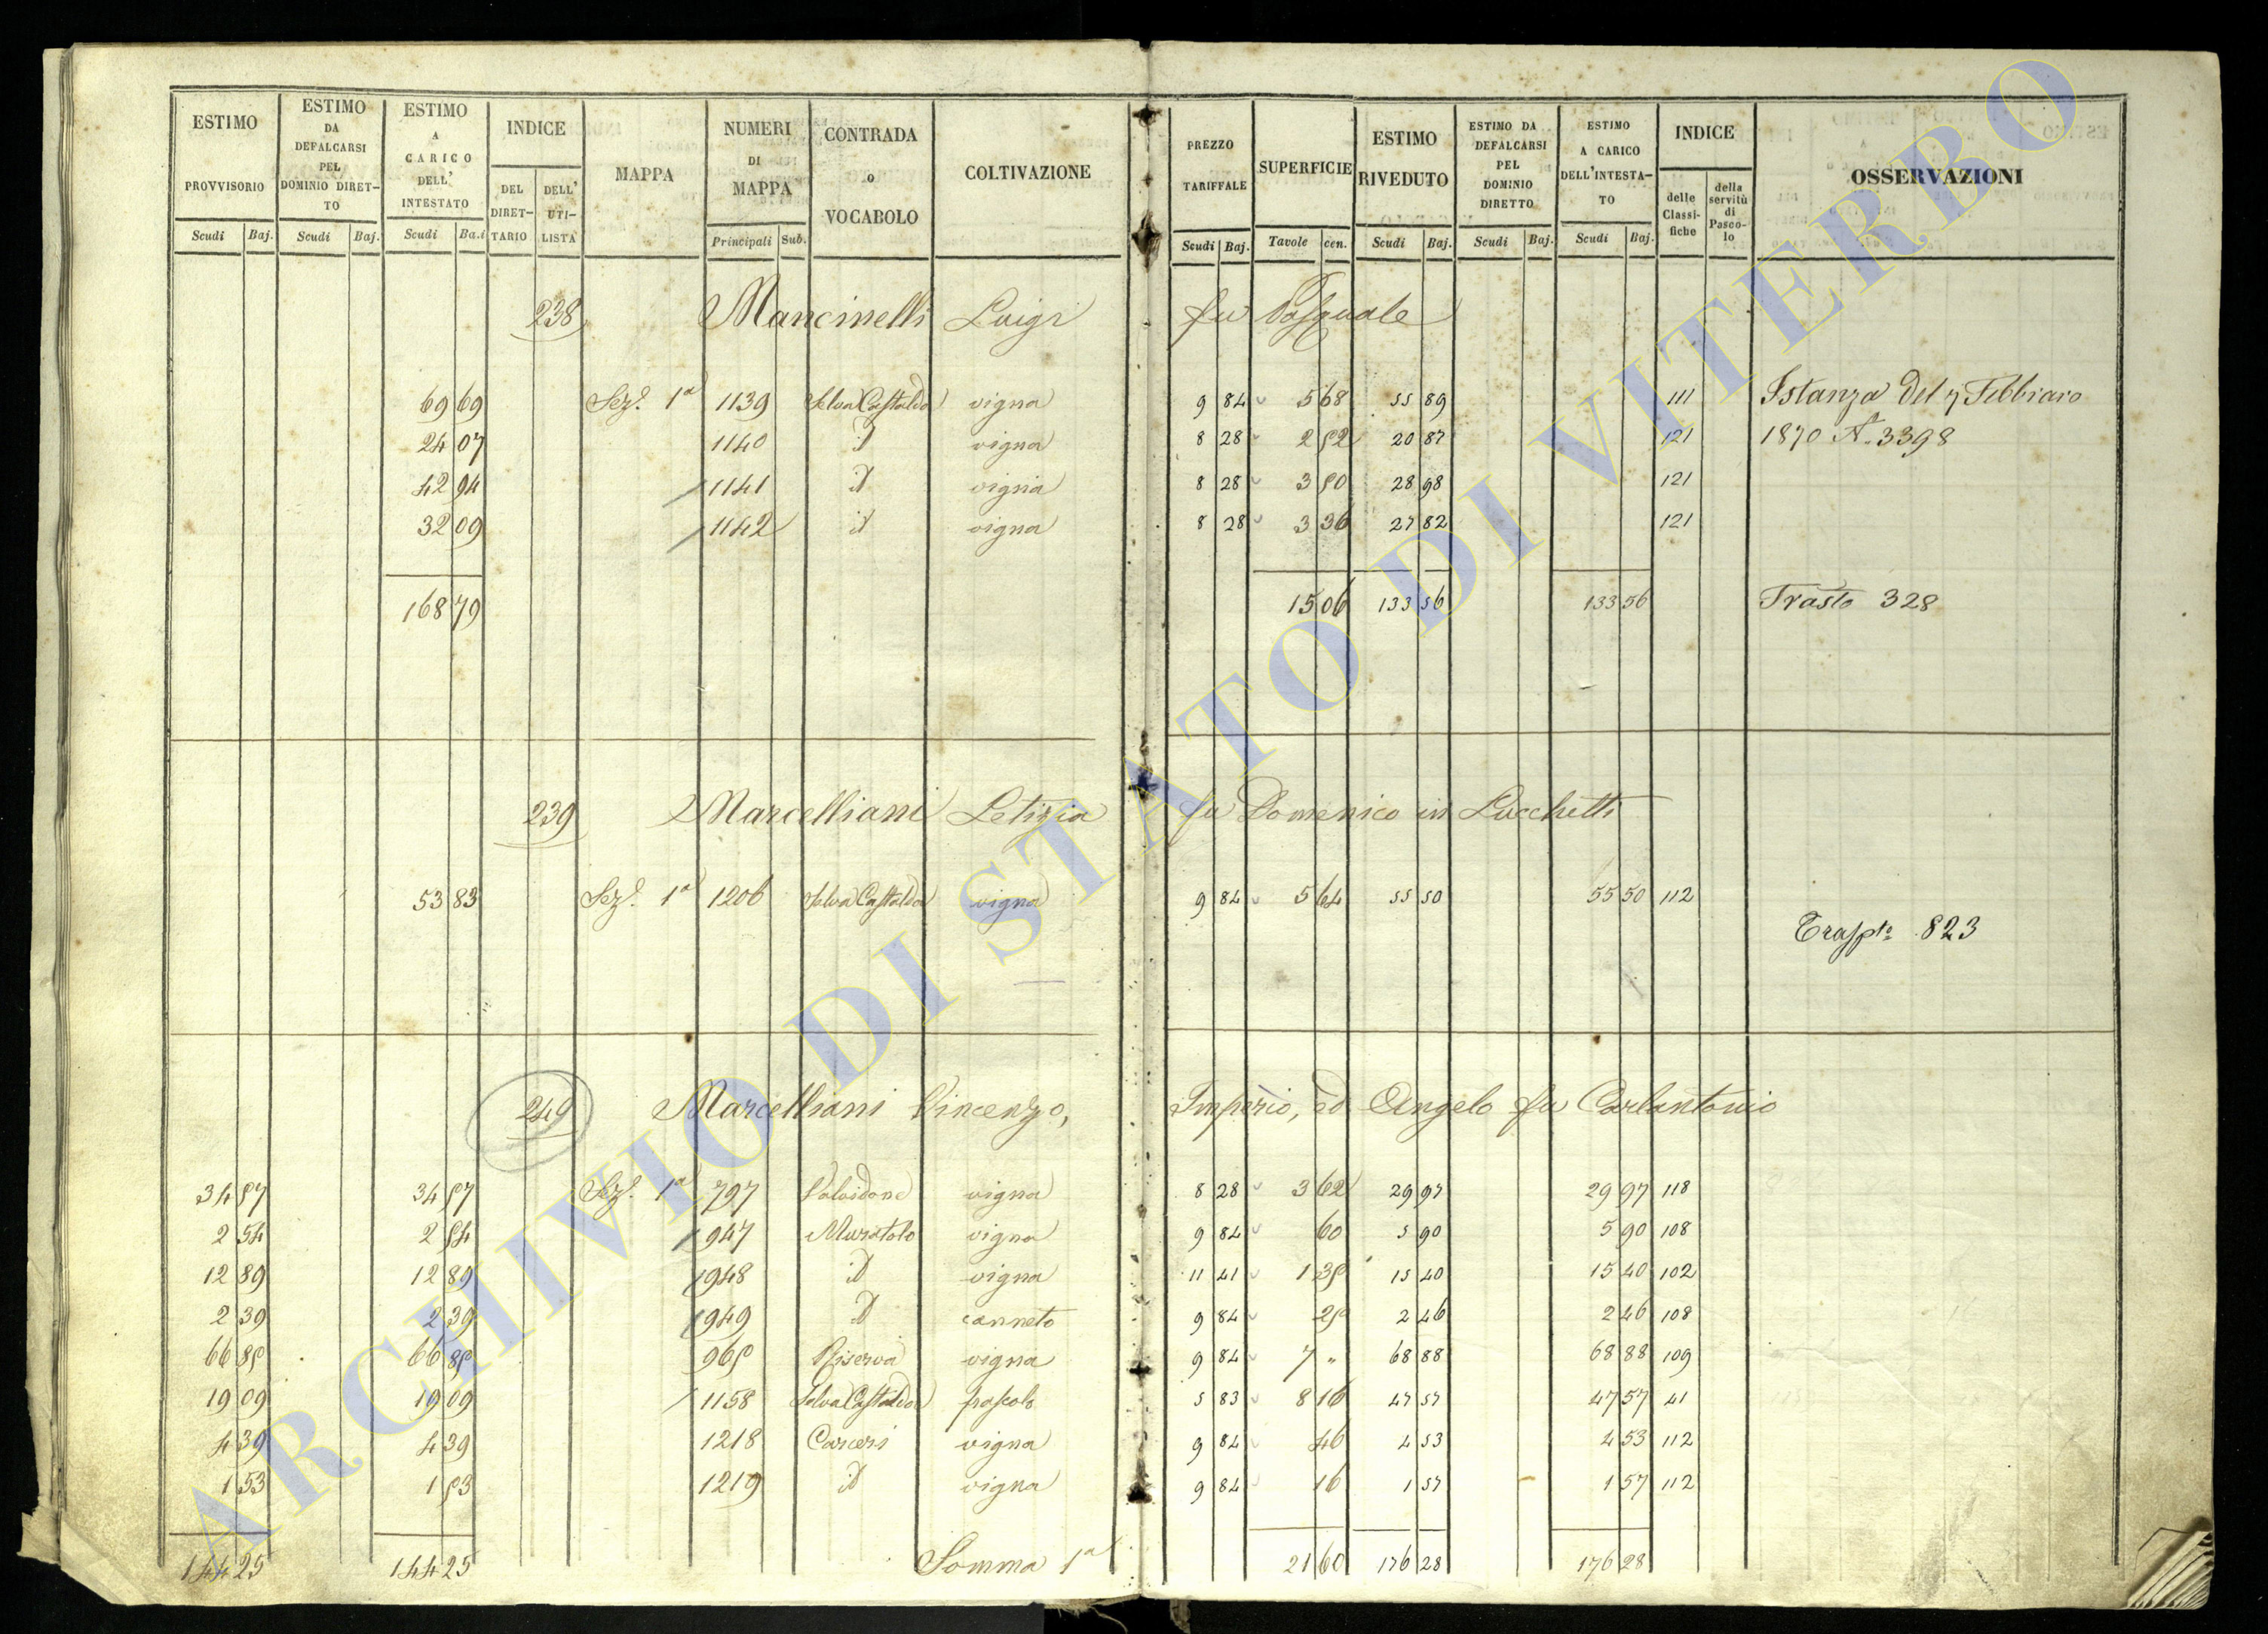 ESTIMO PROVVISORIO Scudi Baj.
ESTIMO DA DEFALCARSI PEL DOMINIO DIRETTO Scudi Baj.
ESTIMO A CARICO DELL' INTESTATO Scudi Ba.i
INDICE DEL DIRETTARIO DELL' UTILISTA
MAPPA
NUMERI DI MAPPA Principali Sub.
CONTRADA o VOCABOLO
COLTIVAZIONE
PREZZO TARIFFALE Scudi Baj.
SUPERFICIE Tavole cen.
ESTIMO RIVEDUTO Scudi Baj.
ESTIMO DA DEFALCARSI PEL DOMINIO DIRETTO Scudi Baj.
ESTIMO A CARICO DELL'INTESTATO Scudi Baj.
INDICE delle Classifiche della servitù di Pascolo
OSSERVAZIONI
238 Mancinelli Luigi fu Pasquale
69 69 Sez.e 1a 1139 Selva Castalda vigna 9 84 5 68 55 89 111 Istanza del 7 Febbiaro
24 07 1140 id vigna 8 28 2 52 20 87 121 1870 N. 3398
42 94 1141 id vigna 8 28 3 50 28 98 121
32 09 1142 id vigna 8 28 3 36 27 82 121
168 79 15 06 133 56 133 56 Trasto 328
239 Marcelliani Letizia fu Domenico in Lucchetti
53 83 Sez.e 1a 1206 Selva Castalda vigna 9 84 5 64 55 50 55 50 112
Traspto 823
249 Marcelliani Vincenzo, Imperio, ed Angelo fu Carlantonio
34 57 34 57 Sez.e 1a 797 vigna 8 28 3 62 29 97 29 97 118
2 54 2 54 947 Muratolo vigna 9 84 60 5 90 5 90 108
12 89 12 89 948 id vigna 11 41 1 35 15 40 15 40 102
2 39 2 39 949 id canneto 9 84 25 2 46 2 46 108
66 85 66 85 965 Riserva vigna 9 84 7 " 68 88 68 88 109
19 09 19 09 1158 Selva Castalda pascolo 5 83 8 16 47 57 47 57 41
4 39 4 39 1218 Carceri vigna 9 84 46 4 53 4 53 112
1 53 1 53 1219 id vigna 9 84 16 1 57 1 57 112
144 25 144 25 Somma 1a 21 60 176 28 176 28
ARCHIVIO DI STATO DI VITERBO